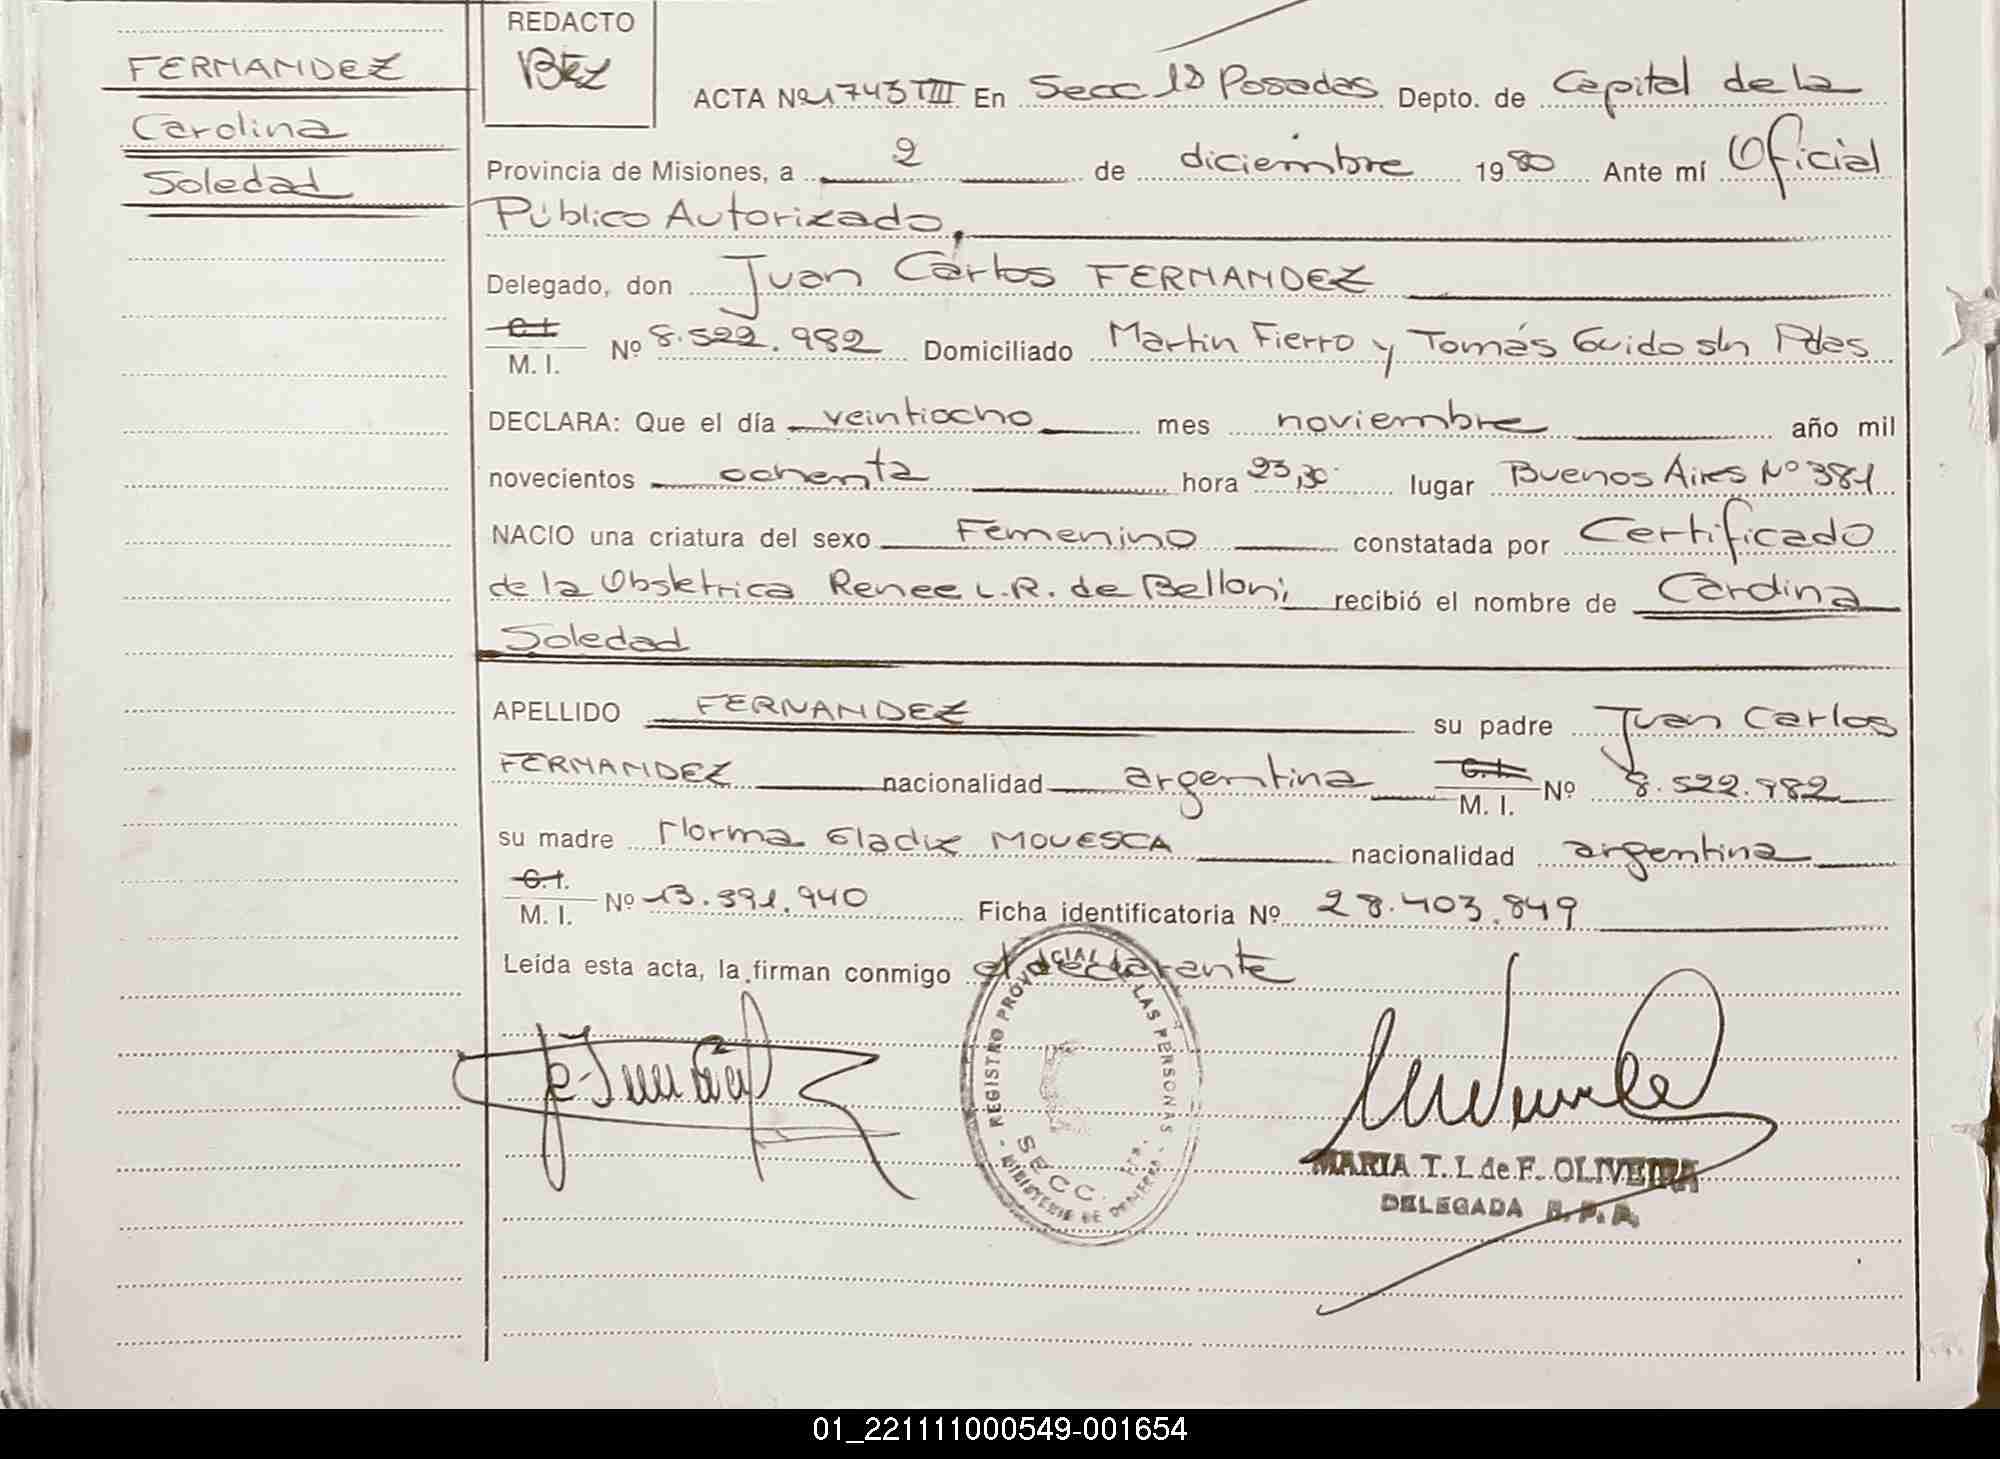 FERNANDEZ
Carolina
Soledad
REDACTO
BEZ
ACTA Nº 1743 TIII En Secc 1ª Posadas Depto. de Capital de la
Provincia de Misiones, a 2 de diciembre 1980 Ante mí Oficial
Público Autorizado.
Delegado, don Juan Carlos FERNANDEZ
C.I.
M. I. Nº 8.522.982 Domiciliado Martin Fierro y Tomás Guido s/n Pdas
DECLARA: Que el día veintiocho mes noviembre año mil
novecientos ochenta hora 23,30 lugar Buenos Aires Nº 384
NACIO una criatura del sexo Femenino constatada por Certificado
de la Obstetrica Renee L.R. de Belloni recibió el nombre de Carolina
Soledad
APELLIDO FERNANDEZ su padre Juan Carlos
FERNANDEZ nacionalidad argentina C.I. M. I. Nº 8.522.982
su madre Norma Gladix MOVESCA nacionalidad argentina
C.I.
M. I. Nº 13.391.940 Ficha identificatoria Nº 28.403.849
Leída esta acta, la firman conmigo el declarante
REGISTRO PROVINCIAL DE LAS PERSONAS
SECC. 1ra.
MINISTERIO DE GENERAL
MARIA T. I. de F. OLIVEIRA
DELEGADA R. P. P.
01_221111000549-001654